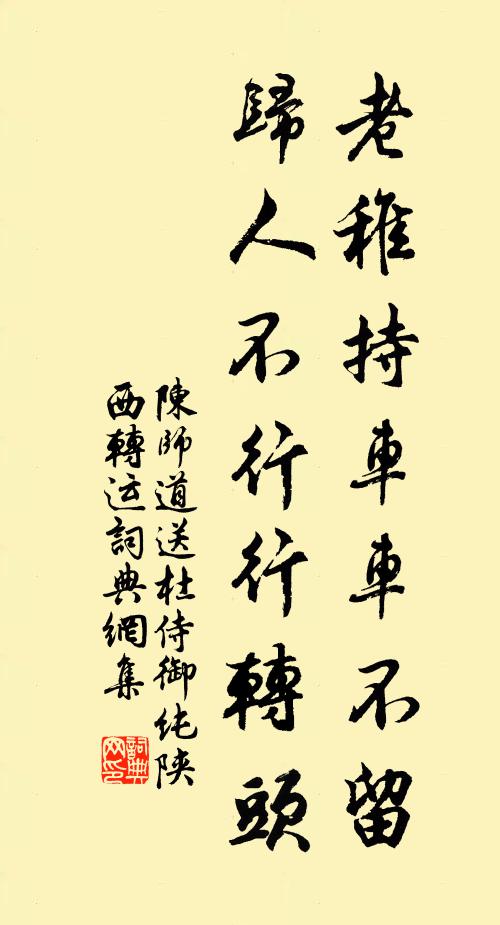 老稚持車車不留
歸人不行行轉頭
陳師道送杜侍御純陝
西轉运詞典網集
詞典
网印